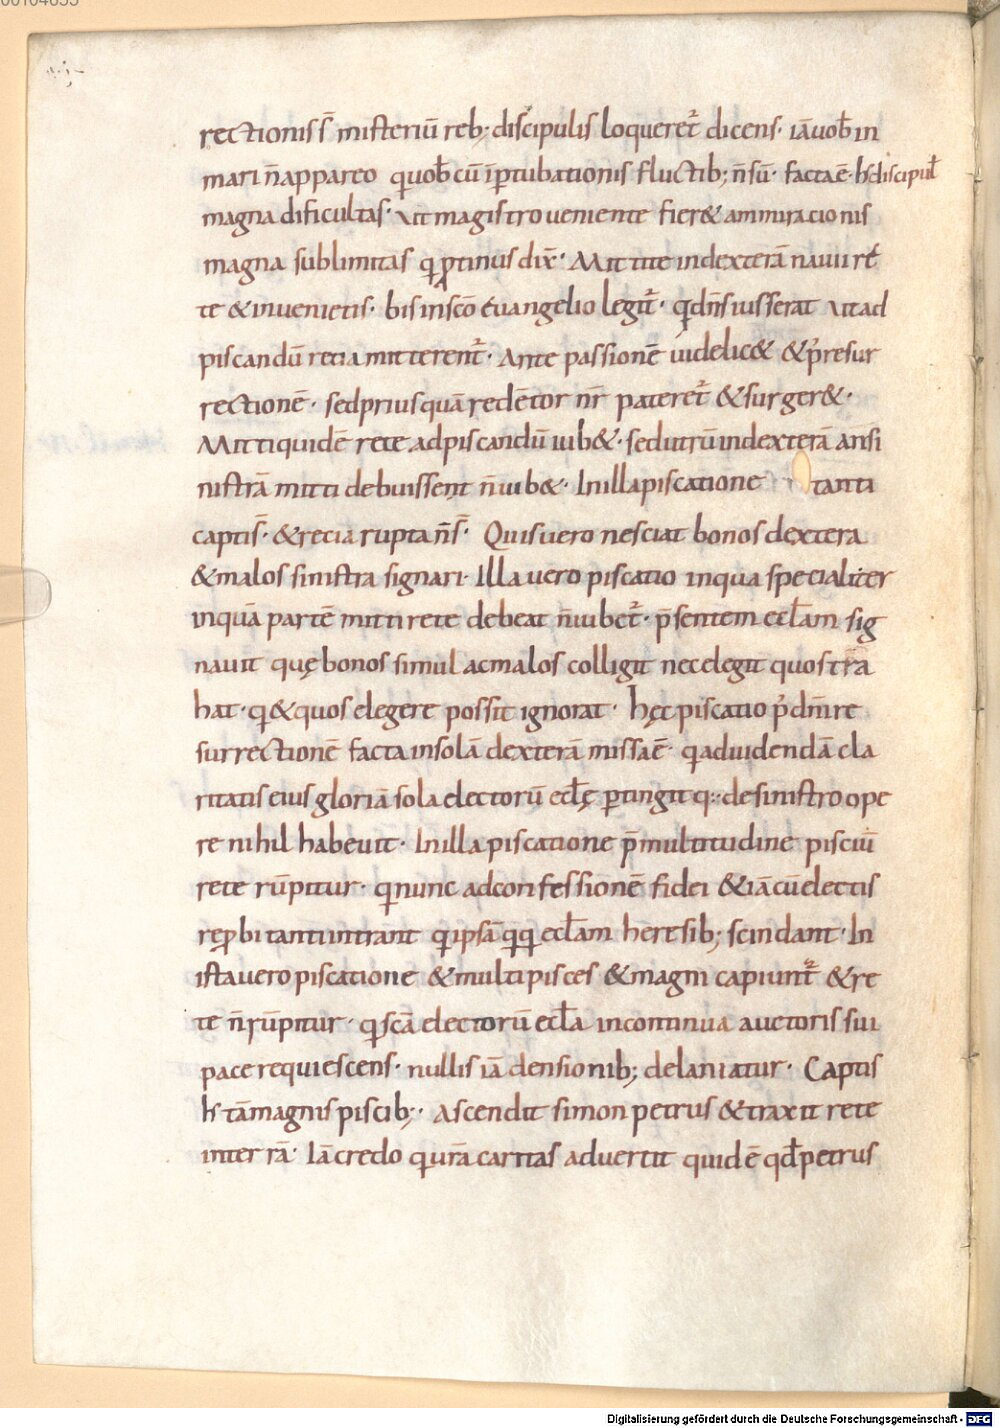 00104655
rectioniſ ſ̄ miſteriū reb; diſcipuliſ loqueret᷒ dicenſ· iā uob̄ in
mari n̄ appareo quob̄ cū īp̱tubationiſ fluctib; n̄ ſū· facta ē· h̄ diſcipul̄
magna dificultaſ· Vt magiſtro ueniente fier& ammiracioniſ
magna ſublimitaſ q p̱tinuſ dix̄· Mittite in dexterā nauii re
te & inuenietiſ· biſ in ſc̄o euangelio legit᷒· qd̄n̄ſ iuſſerat Vt ad
piſcandū retia mitterent᷒· Ante paſſionē uidelic& & p᷒ reſur
rectionē· ſed priuſquā redētor nr̄ pateret᷒ & ſurger&·
Mitti quidē rete ad piſcandū iub&· ſed utrū in dexterā an ſi
niſtrā mitti debuiſſent n̄ iub&· In illa piſcatione tanti
captiſ̄· & recia rupta n̄ ſ̄· Quiſ uero neſciat bonoſ dextera
& maloſ ſiniſtra ſignari· Illa uero piſcatio in qua ſpecialiter
in quā partē mitti rete debeat n̄ iubet᷒· p̄ſentem eccl̄am ſig
nauit quę bonoſ ſimul ac maloſ colligit nec elegit quoſ tra
hat· q & quoſ elegere poſſit ignorat· hęc piſcatio p᷒ dn̄i re
ſurrectionē facta in ſolā dexterā miſſa ē· q ad uidendā cla
ritatiſ eiuſ gloriā ſola electorū eccl̄ę p̱tingit q; de ſiniſtro ope
re nihil habeuit· In illa piſcatione p̄ multitudine piſciū
rete rūpitur· q nunc ad confeſſionē fidei & iā cū electiſ
rep̱bi tanti intrant q ipſā qq eccl̄am hereſib; ſcindant· In
iſta uero piſcatione & multi piſceſ & magni capiunt᷒ & re
te n̄ rūpitur· q ſcā electorū eccl̄a in continua auctoriſ ſui
pace requieſcenſ· nulliſ iā denſionib; delaniatur· Captiſ
h̄ tā magniſ piſcib;· Aſcendit ſimon petruſ & traxit rete
in terrā· Iā credo q urā caritaſ aduertit quid ē qd̄ petruſ
Digitalisierung gefördert durch die Deutsche Forschungsgemeinschaft - DFG